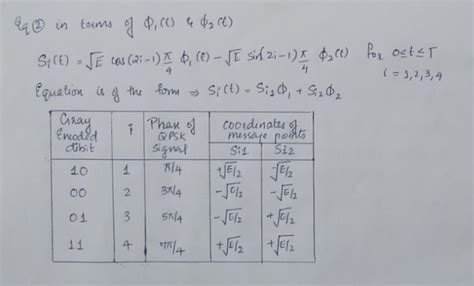 Eq ② in terms of Φ₁(t) & Φ₂(t)
Si(t) = √E cos(2i-1)π/4 Φ₁(t) - √E sin(2i-1)π/4 Φ₂(t) for 0≤t≤T
i = 1,2,3,4
Equation is of the form ⇒ Si(t) = Si1Φ₁ + Si2Φ₂
Gray Encoded dibit | i | Phase of QPSK signal | Coordinates of message points
Si1 | Si2
10 | 1 | π/4 | +√E/2 | -√E/2
00 | 2 | 3π/4 | -√E/2 | -√E/2
01 | 3 | 5π/4 | -√E/2 | +√E/2
11 | 4 | 7π/4 | +√E/2 | +√E/2